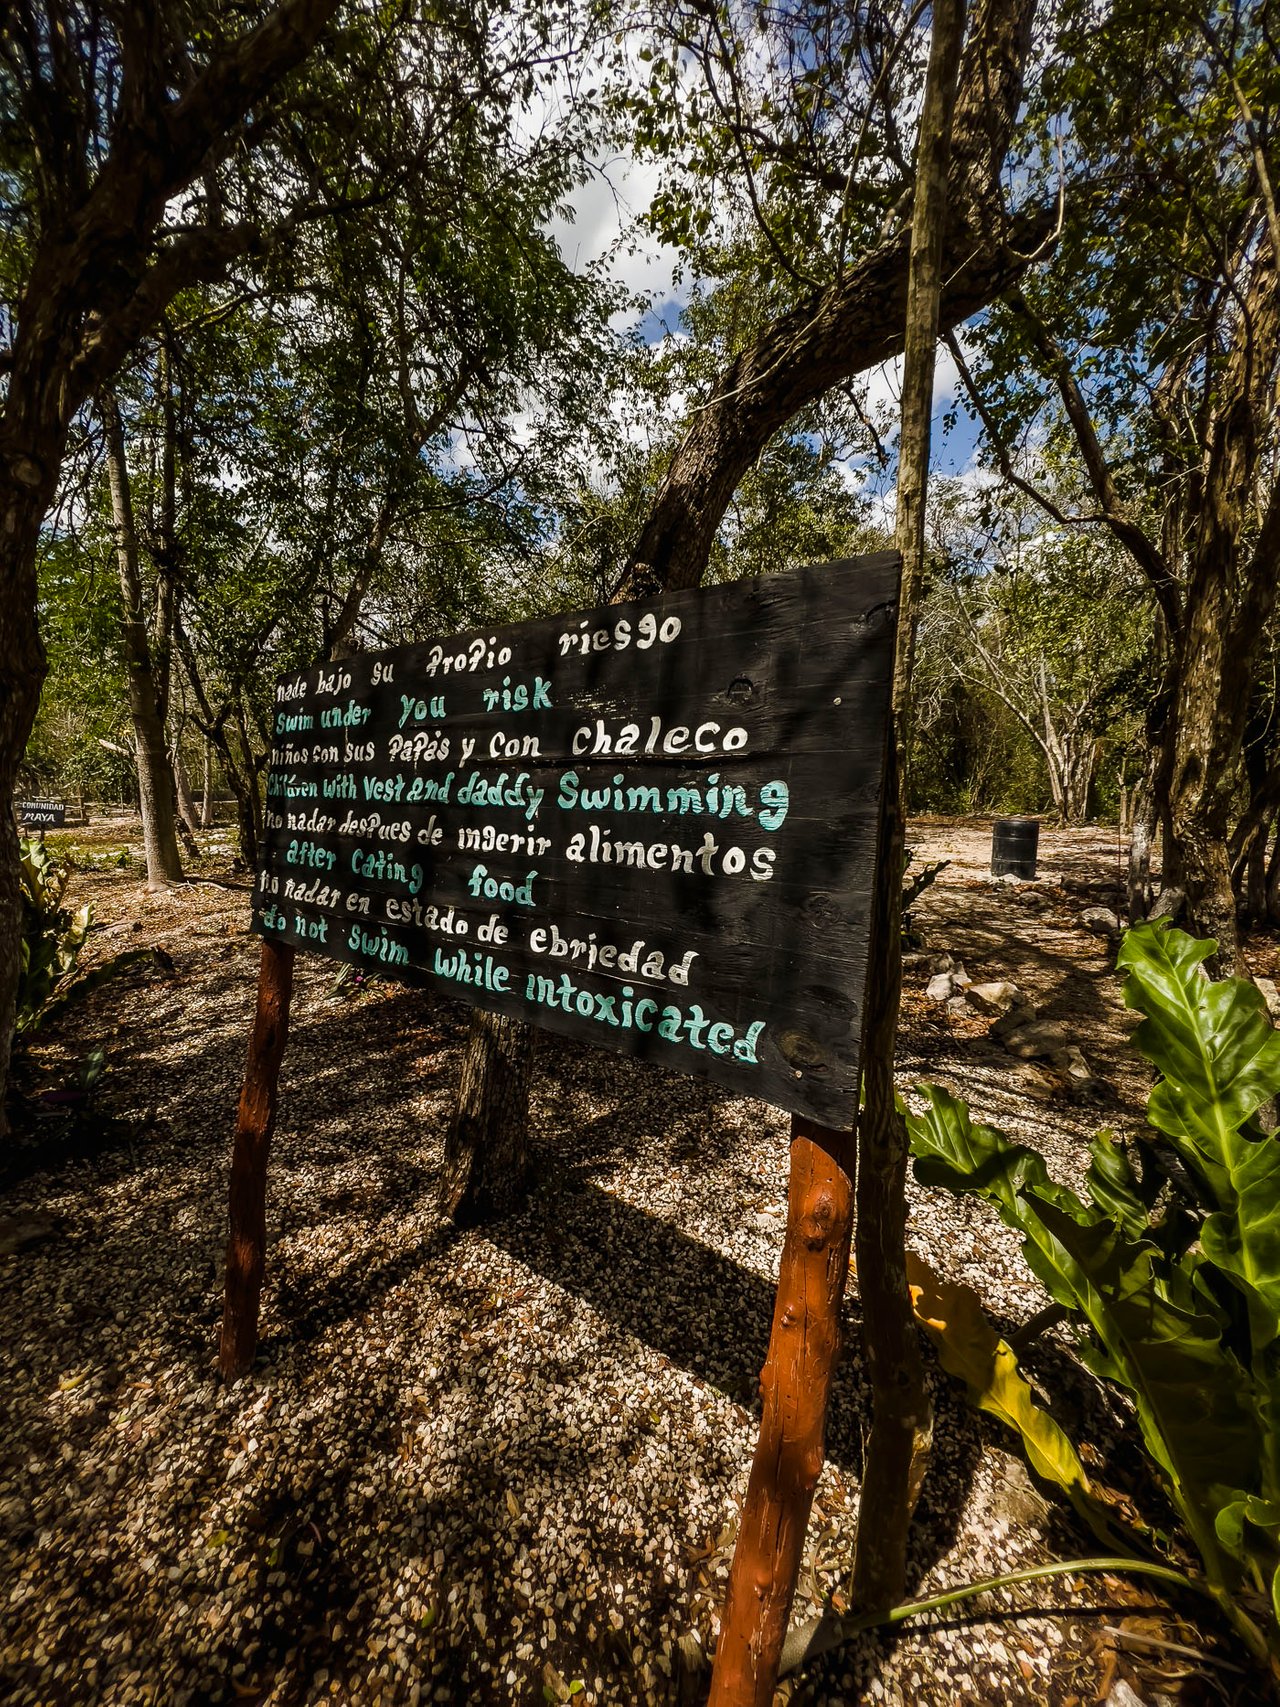 nade bajo su propio riesgo
Swim under you risk
niños con sus papás y con chaleco
Children with vest and daddy Swimming
no nadar despues de ingerir alimentos
after eating food
no nadar en estado de ebriedad
do not swim while intoxicated
COMUNIDAD
MAYA